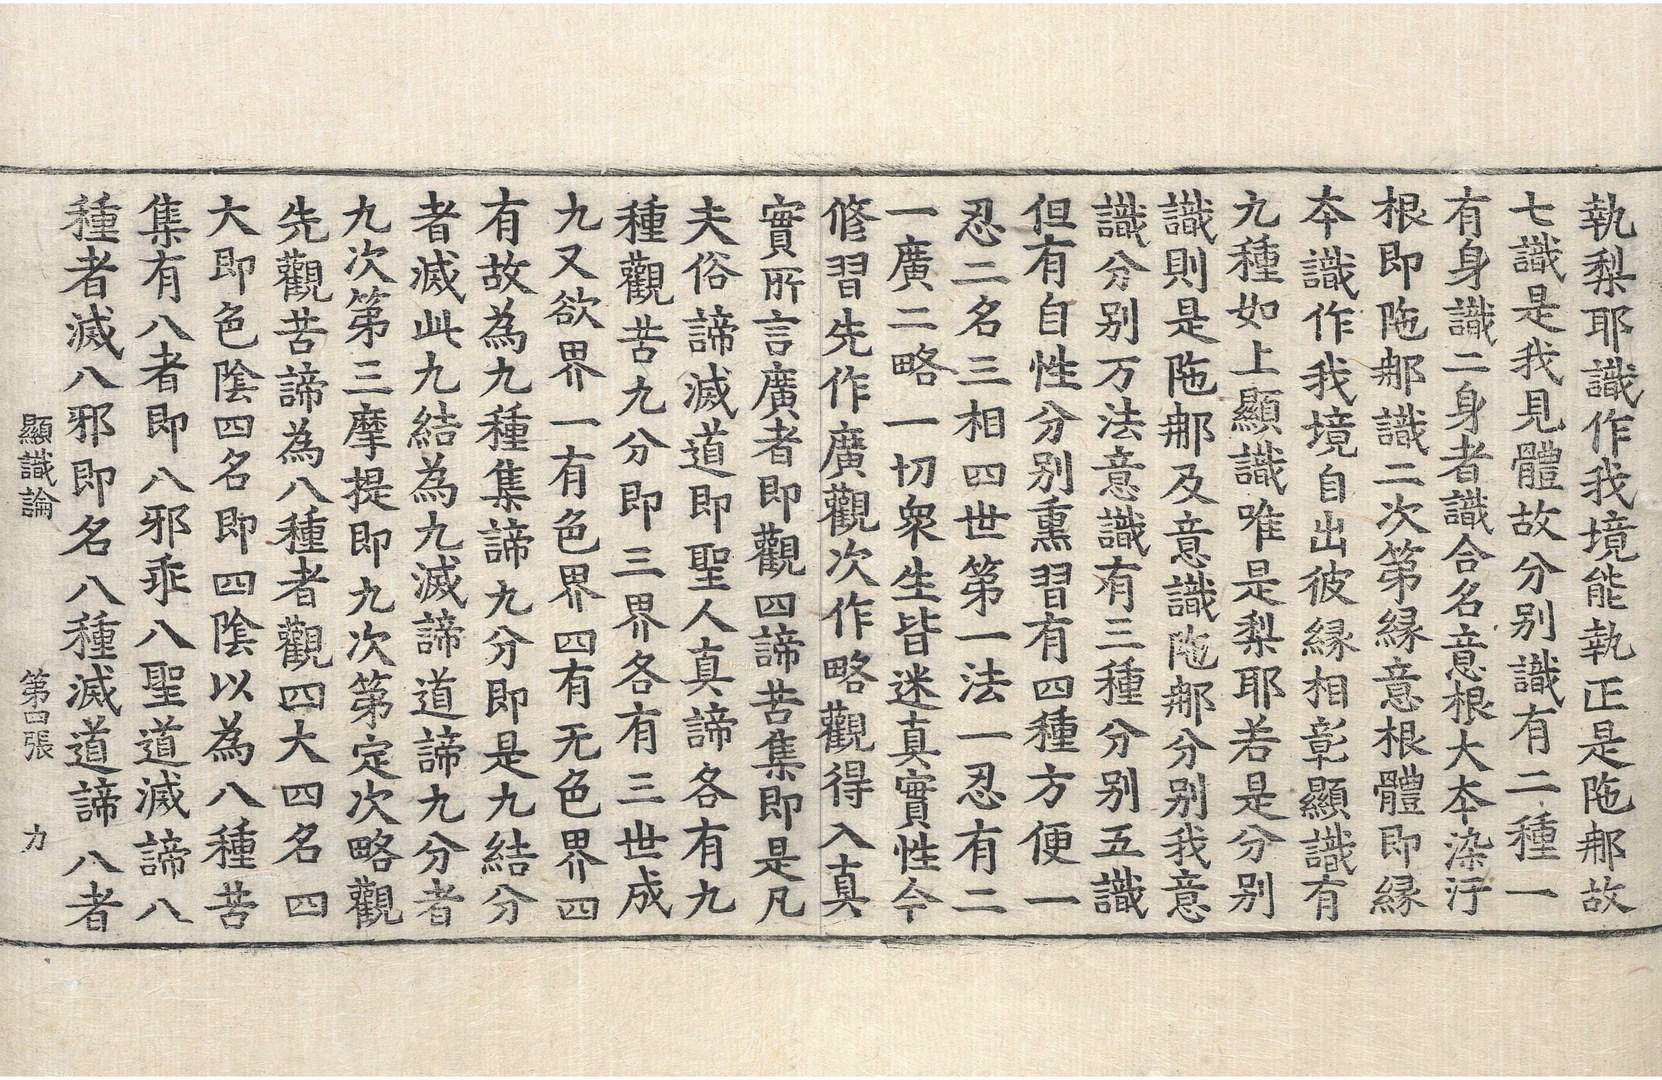 執梨耶識作我境能執正是陁郍故
七識是我見體故分别識有二種一
有身識二身者識合名意根大夲染汙
根即陁郍識二次第縁意根體即縁
夲識作我境自出彼縁相彰顯識有
九種如上顯識唯是梨耶若是分别
識則是陁郍及意識陁郍分别我意
識分别万法意識有三種分别五識
但有自性分别熏習有四種方便一
忍二名三相四世第一法一忍有二
一廣二略一切衆生皆迷真實性今
修習先作廣觀次作略觀得入真
實所言廣者即觀四諦苦集即是凡
夫俗諦滅道即聖人真諦各有九
種觀苦九分即三界各有三世成
九又欲界一有色界四有无色界四
有故為九種集諦九分即是九結分
者滅此九結為九滅諦道諦九分者
九次第三摩提即九次第定次略觀
先觀苦諦為八種者觀四大四名四
大即色陰四名即四陰以為八種苦
集有八者即八邪乖八聖道滅諦八
種者滅八邪即名八種滅道諦八者
顯識論 第四張 力